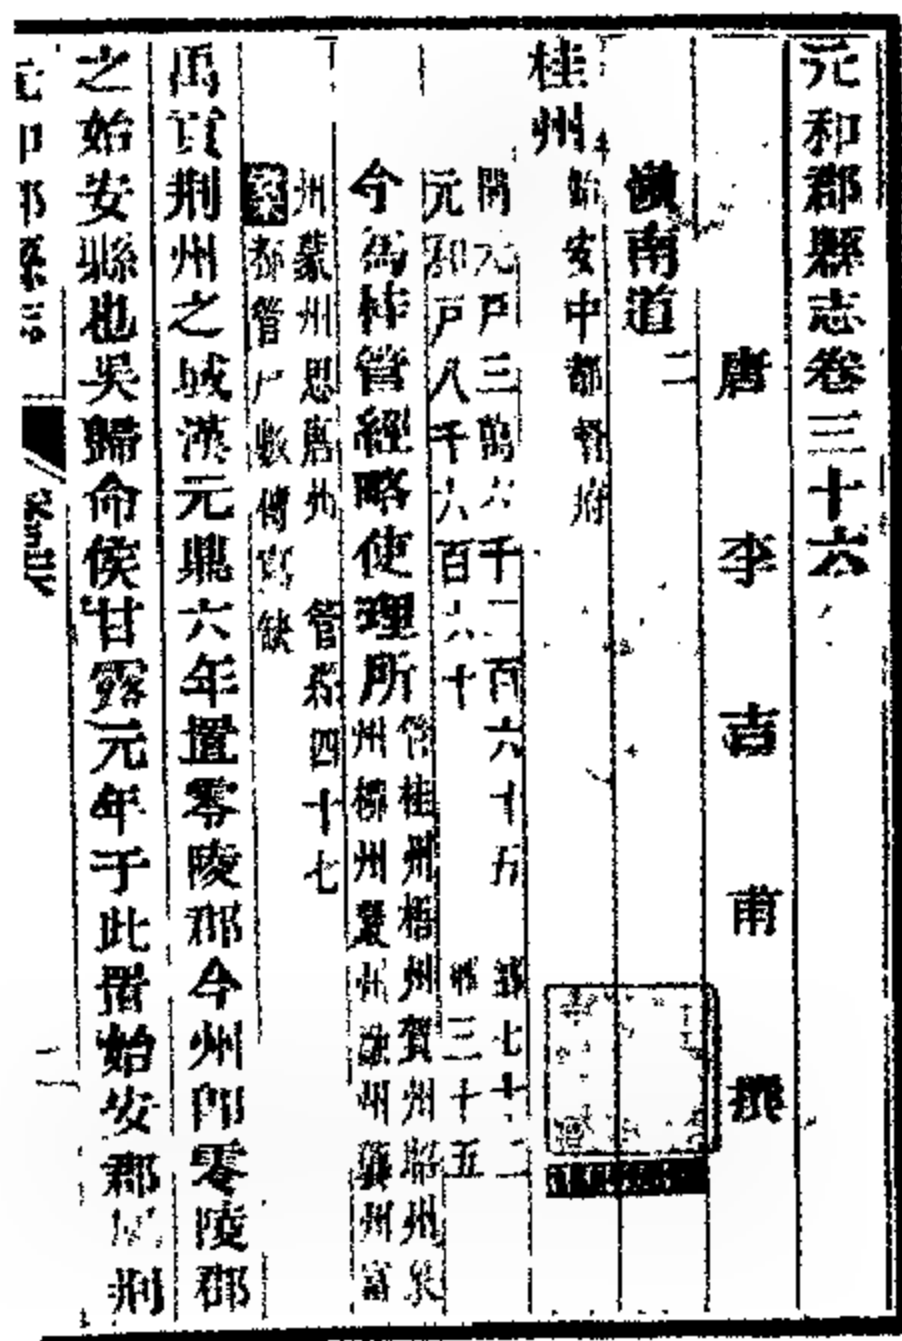 元和郡縣志卷三十六
唐李吉甫撰
嶺南道二
桂州
始安中都督府
開元戶三萬六千二百六十五 鄉七十二
元和戶八千六百六十 鄉三十五
今爲桂管經略使理所
管桂州梧州賀州昭州象
州柳州嚴州融州龔州富
州蒙州思唐州 管縣四十七
案都管戶數傳寫缺
禹貢荆州之域漢元鼎六年置零陵郡今州即零陵郡
之始安縣也吳歸命侯甘露元年于此置始安郡屬荆